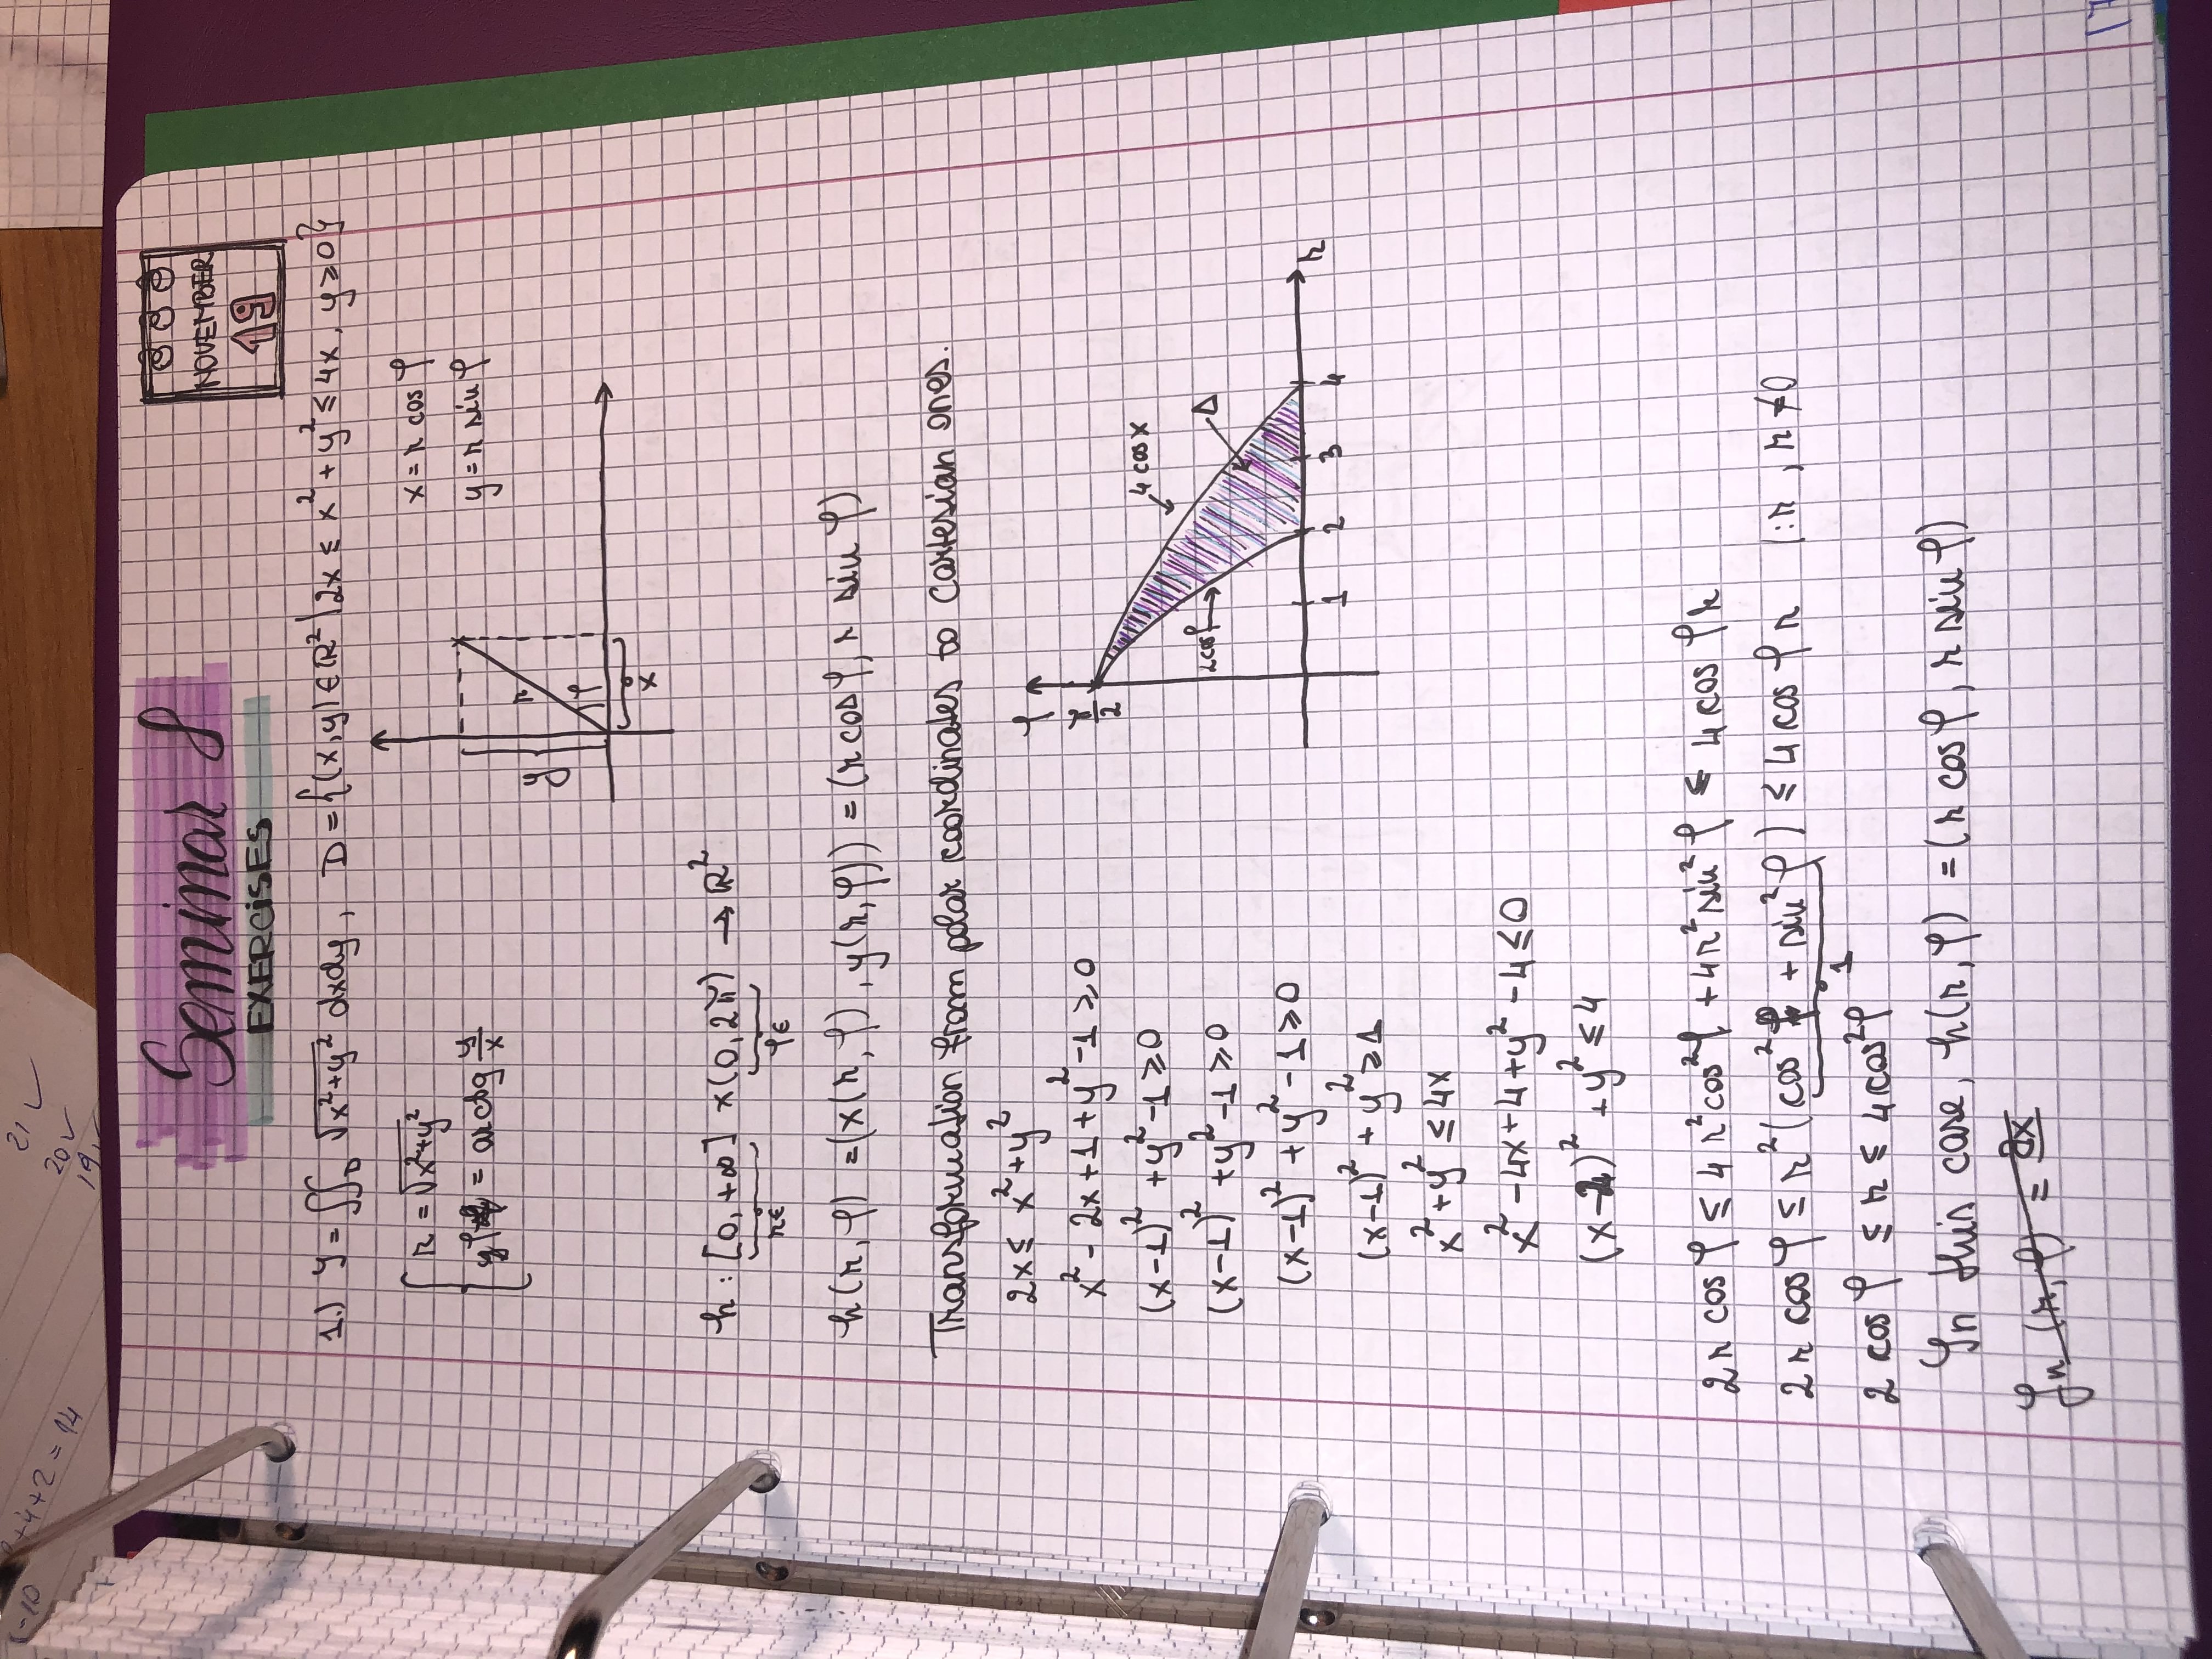 -10
+4+2=14
21 ✓
20 ✓
19 ✓
Seminar 8
EXERCISES
NOVEMBER
19
1.) J = ∬_D √(x²+y²) dxdy , D = {(x,y) ∈ ℝ² | 2x ≤ x² + y² ≤ 4x, y ≥ 0}
r = √(x²+y²)
φ = arctg y/x
x = r cos φ
y = r sin φ
y
r
φ
x
h : [0, +∞] × (0, 2π) → ℝ²
r∈ φ∈
h(r, φ) = (x(r, φ), y(r, φ)) = (r cos φ, r sin φ)
Transformation from polar coordinates to Cartesian ones.
2x ≤ x² + y²
x² - 2x + 1 + y² - 1 ≥ 0
(x-1)² + y² - 1 ≥ 0
(x-1)² + y² - 1 ≥ 0
(x-1)² + y² - 1 ≥ 0
(x-1)² + y² ≥ 1
x² + y² ≤ 4x
x² - 4x + 4 + y² - 4 ≤ 0
(x-2)² + y² ≤ 4
φ
π/2
4 cos x
2cos φ
Δ
1 2 3 4
r
2 r cos φ ≤ 4 r² cos² φ + 4r² sin² φ ≤ 4 cos φ r
2 r cos φ ≤ r² (cos² φ + sin² φ) ≤ 4 cos φ r |:r , r ≠ 0
1
2 cos φ ≤ r ≤ 4 cos² φ
In this case, h(r, φ) = (r cos φ, r sin φ)
Jn (r, φ) = ∂x
17